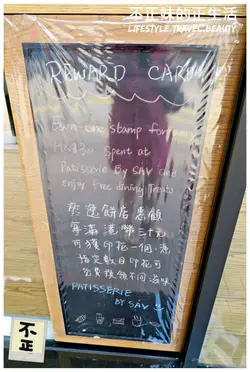 不正妹的正生活
LIFESTYLE.TRAVEL.BEAUTY
REWARD CARD
Earn one stamp for every
HK$30 spent at
Patisserie By SÁV and
enjoy free dining treats
於逸餅店惠顧
每滿港幣三十元
可獲印花一個，憑
指定數目印花可
免費換領不同滋味
PATISSERIE
BY SÁV
不正